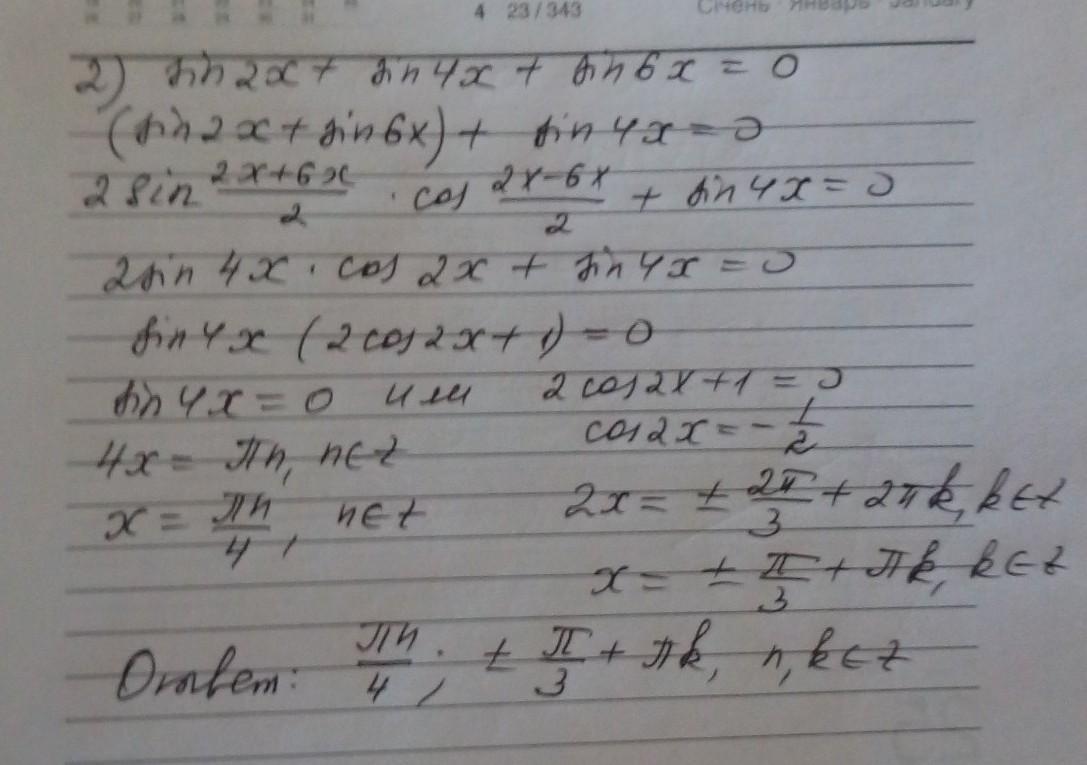 4 23/343 Січень · Январь · January
2) sin2x + sin4x + sin6x = 0
(sin2x + sin6x) + sin4x = 0
2 sin (2x+6x)/2 · cos (2x-6x)/2 + sin4x = 0
2sin 4x · cos 2x + sin4x = 0
sin4x (2cos2x + 1) = 0
sin4x = 0 или 2cos2x + 1 = 0
4x = πn, n∈z cos2x = -1/2
x = πn/4, n∈z 2x = ± 2π/3 + 2πk, k∈z
x = ± π/3 + πk, k∈z
Ответ: πn/4; ± π/3 + πk, n,k∈z